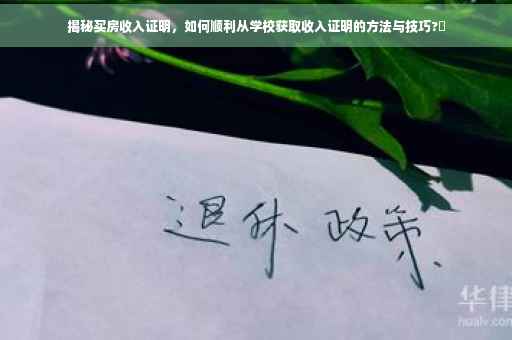 揭秘买房收入证明，如何顺利从学校获取收入证明的方法与技巧?
退休 政策
华律
hualv.com